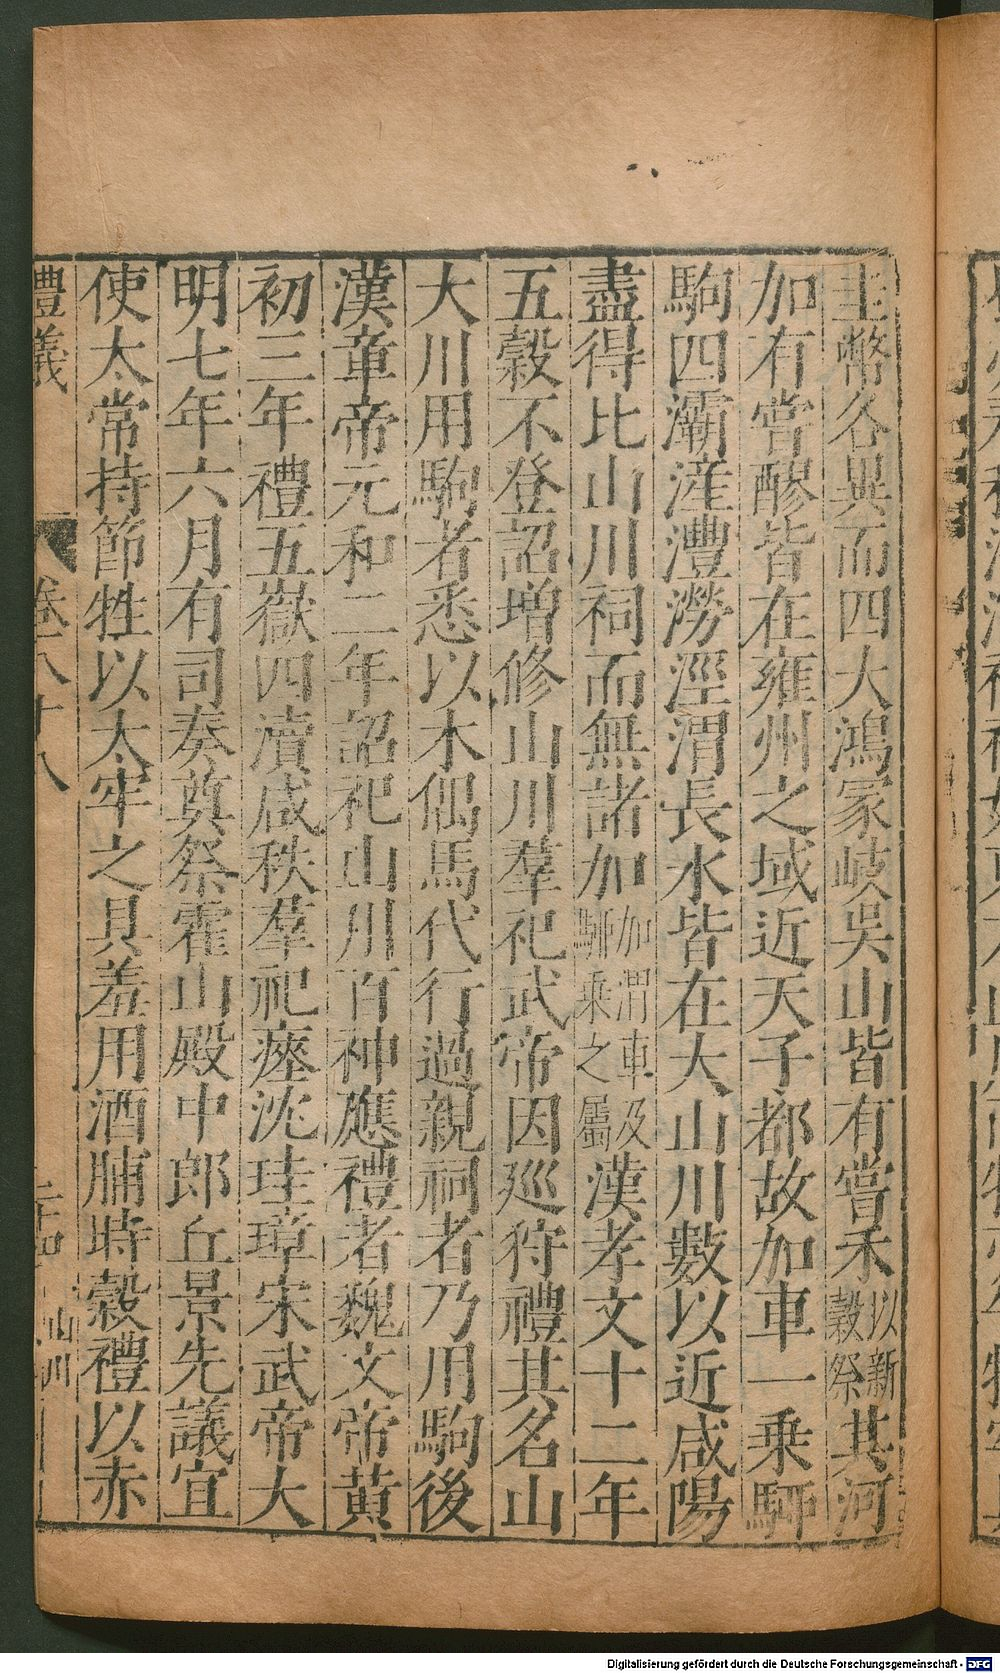 圭幣各異而四大鴻冢岐吳山皆有嘗禾以新穀祭其河
加有嘗醪皆在雍州之域近天子都故加車一乘駵
駒四灞滻灃澇涇渭長水皆在大山川數以近咸陽
盡得比山川祠而無諸加加渭車及駵乘之屬漢孝文十二年
五穀不登詔增修山川羣祀武帝因巡狩禮其名山
大川用駒者悉以木偶馬代行過親祠者乃用駒後
漢章帝元和二年詔祀山川百神應禮者魏文帝黃
初三年禮五嶽四瀆咸秩羣祀瘞沈珪璋宋武帝大
明七年六月有司奏奠祭霍山殿中郎丘景先議宜
使太常持節牲以太牢之具羞用酒脯時穀禮以赤
禮義 卷二八十八 二十四 山川
Digitalisierung gefördert durch die Deutsche Forschungsgemeinschaft - DFG